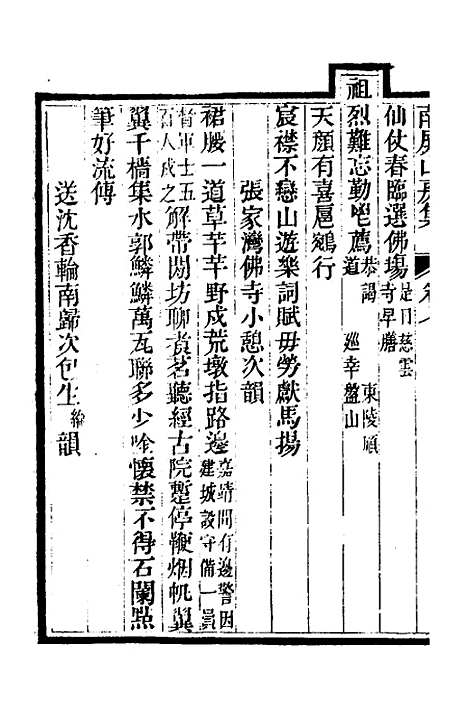 南屏山房集
仙仗春臨選佛場是日慈雲寺早膳
祖烈難忘勤鬯薦恭謁 東陵順道 巡幸盤山
天顏有喜扈鵷行
宸襟不戀山遊樂詞賦毋勞獻馬揚
張家灣佛寺小憩次韻
裙腰一道草芊芊野戍荒墩指路邊嘉靖間有邊警因建城設守備一員
督軍士五百人戍之解帶閒坊聊煑茗聽經古院蹔停鞭烟帆翼
翼千檣集水郭鱗鱗萬瓦聯多少唫懷禁不得石闌㸃
筆好流傳
送沈香輪南歸次包生綸韻